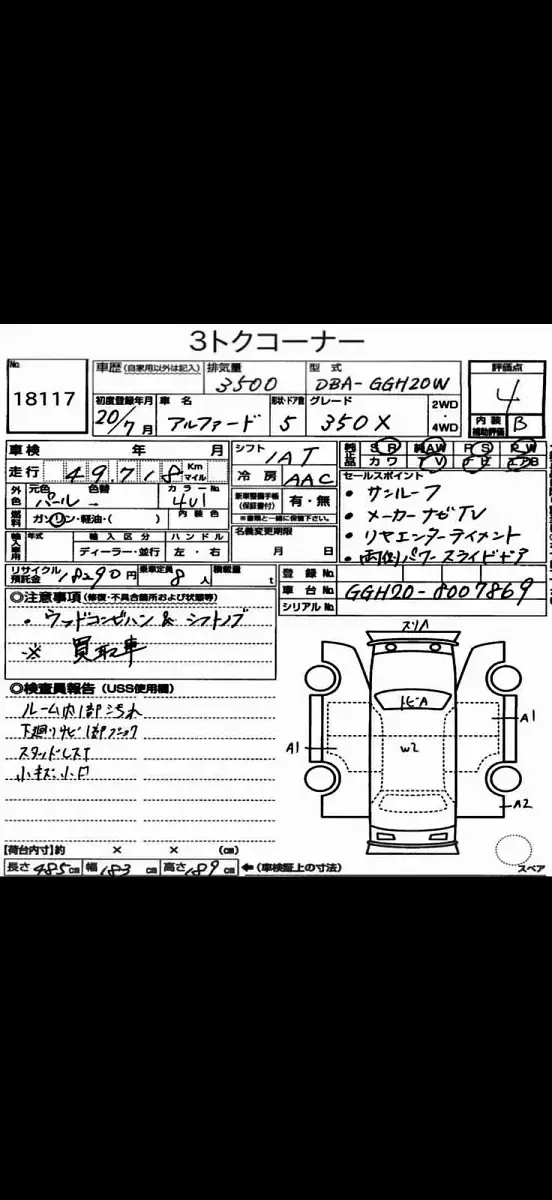 3トクコーナー
No. 18117
車歴 (自家用以外は記入)
排気量 3500
型式 DBA-GGH20W
評価点 4
初度登録年月 20/7月
車名 アルファード
形状・ドア数 5
グレード 350X
2WD・4WD
内装補助評価 B
車検 年 月
走行 49,718 Km マイル
外色 元色 パール 色替 →
カラーNo. 4U1
燃料 ガソリン・軽油・( )
内装色
輸入車用 年式 輸入区分 ハンドル
ディーラー・並行 左・右
シフト IAT
冷房 AAC
新車整備手帳(保証書付) 有・無
※書類と一緒に保管下さい。
名義変更期限
月 日
純正品 SR 純AW PS PW
カワ TV ナビ エアB
セールスポイント
・サンルーフ
・メーカーナビTV
・リヤエンターテイメント
・両側パワースライドドア
リサイクル預託金 18290円
乗車定員 8人
積載量 t
登録No.
車台No. GGH20-8007869
シリアルNo.
◎注意事項 (修復・不具合箇所および状態等)
・ウッドコンビハン & シフトノブ
※ 買取車
◎検査員報告 (USS使用欄)
ルーム内1部汚れ
下廻りサビ1部
小キズ小凹
スリA
トビA
A1
A1
W2
A2
スペア
【荷台内寸】約 × × (cm)
長さ 485cm 幅 183cm 高さ 189cm ←(車検証上の寸法)